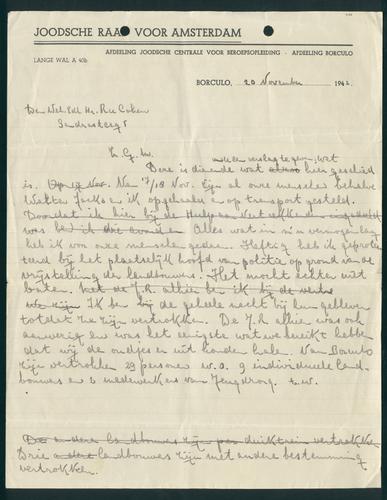 JOODSCHE RAAD VOOR AMSTERDAM
AFDEELING JOODSCHE CENTRALE VOOR BEROEPSOPLEIDING - AFDEELING BORCULO
LANGE WAL A 40b
BORCULO, 20 November 1942.
Den Wel.Ed. Hr. R. Cohen
Z. G. W.
U een verslag te geven, wat
Deze is dienende wat alhier hier geschied
is. Op 17 Nov. Van 17/18 Nov. zijn al onze menschen behalve
Walter Jacks en ik opgehaald en op transport gesteld.
Doordat ik hier bij de Hulp aan Vertrekkenden
was ben ik Alles wat in mijn vermogen lag
heb ik voor onze menschen gedaan. Heftig heb ik geprotes-
teerd bij het plaatselijk hoofd van politie op grond van de
vrijstelling der landbouwers. Het mocht echter niet
baten. Met de J.R. alhier ben ik bij de
Ik ben bij de geheele nacht bij hun gebleven
totdat ze zijn vertrokken. De J.R. alhier was ook
aanwezig en was het eenigste wat we bereikt hebben
dat wij de oudjes er uit konden halen. Van Borculo
zijn vertrokken 29 personen w.o. 9 individueele land-
bouwers en 3 medewerkers van Jeugdzorg t.w.
De andere landbouwers zijn per vertrokken
Drie andere landbouwers zijn met andere bestemming
vertrokken.